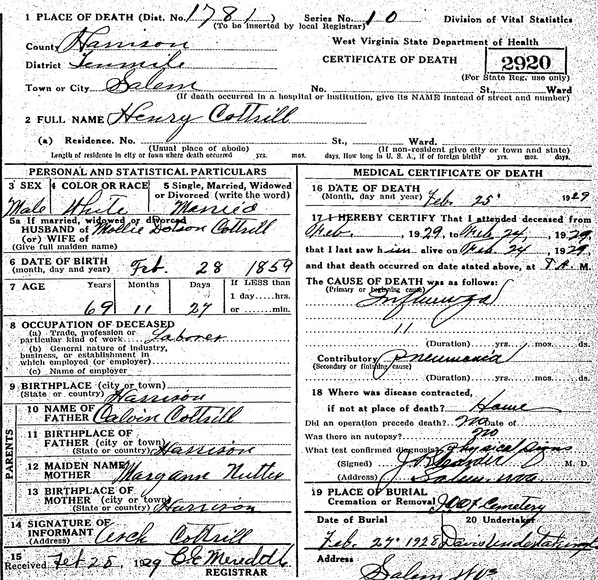 1 PLACE OF DEATH (Dist. No. 1781 Series No. 10 Division of Vital Statistics
(To be inserted by local Registrar)
County Harrison West Virginia State Department of Health
District Tenmile CERTIFICATE OF DEATH 2920
Town or City Salem No. St., Ward (For State Reg. use only)
(If death occurred in a hospital or institution, give its NAME instead of street and number)
2 FULL NAME Henry Cottrill
(a) Residence. No. St., Ward.
(Usual place of abode) (If non-resident give city or town and state)
Length of residence in city or town where death occurred yrs. mos. days. How long in U. S. A., if of foreign birth? yrs. mos. days
PERSONAL AND STATISTICAL PARTICULARS
3 SEX 4 COLOR OR RACE 5 Single, Married, Widowed
or Divorced (write the word)
Male White Married
5a If married, widowed or divorced
HUSBAND OF Mollie Dotson Cottrill
(or) WIFE of
(Give full maiden name)
6 DATE OF BIRTH
(month, day and year) Feb. 28 1859
7 AGE Years Months Days If LESS than
1 day.....hrs.
69 11 27 or ..... min.
8 OCCUPATION OF DECEASED
(a) Trade, profession or
particular kind of work Laborer
(b) General nature of industry,
business, or establishment in
which employed (or employer)
(c) Name of employer
9 BIRTHPLACE (city or town)
(State or country) Harrison
PARENTS
10 NAME OF
FATHER Calvin Cottrill
11 BIRTHPLACE OF
FATHER (city or town)
(State or country) Harrison
12 MAIDEN NAME
MOTHER Margann Nutter
13 BIRTHPLACE OF
MOTHER (city or town)
(State or country) Harrison
14 SIGNATURE OF
INFORMANT Arch Cottrill
(Address)
15
Received Feb 28, 1929 C. E. Meredith
REGISTRAR
MEDICAL CERTIFICATE OF DEATH
16 DATE OF DEATH
(Month, day and year) Feb. 25 1929
17 I HEREBY CERTIFY That I attended deceased from
Feb. , 1929, to Feb. 24, 1929,
that I last saw him alive on Feb. 24, 1929,
and that death occurred on date stated above, at M.
The CAUSE OF DEATH was as follows:
(Primary or beginning cause)
Influenza
11
(Duration) yrs. mos. ds.
Contributory Pneumonia
(Secondary or finishing cause)
(Duration) yrs. mos. ds.
18 Where was disease contracted,
if not at place of death? Home
Did an operation precede death? no Date of
Was there an autopsy? no
What test confirmed diagnosis? Physical Signs
(Signed) M. D.
(Address) Salem
19 PLACE OF BURIAL
Cremation or Removal IOOF Cemetery
Date of Burial 20 Undertaker
Feb. 27 1928 Davis Undertaking
Address
Salem